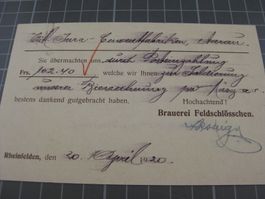 Tit. Jura-Cementfabriken, Aarau.
Sie übermachten uns durch Posteinzahlung
Frs. 102.40 welche wir Ihnen zur Saldierung
unserer Bierrechnung pro März a.c.
bestens dankend gutgebracht haben.
Hochachtend!
Brauerei Feldschlösschen
Rheinfelden, den 20. April 1920.